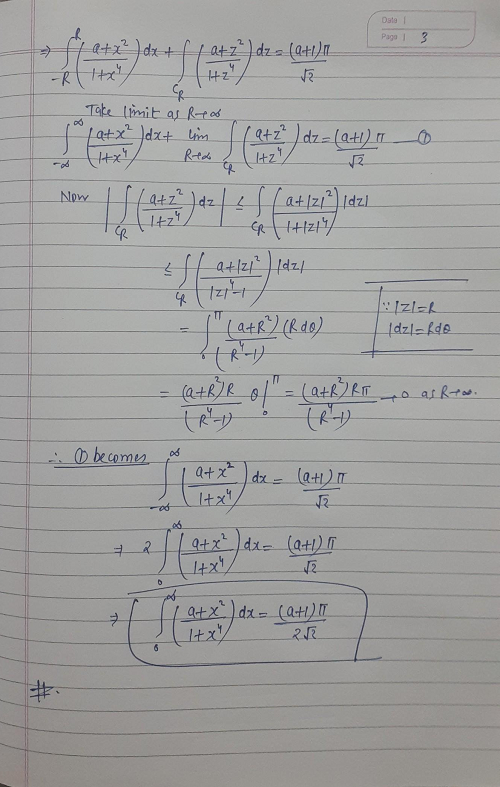 Data |
Page | 3
⇒ ∫_{-R}^{R} ((a+x²)/(1+x⁴)) dx + ∫_{C_R} ((a+z²)/(1+z⁴)) dz = (a+1)π/√2
Take limit as R→∞
∫_{-∞}^{∞} ((a+x²)/(1+x⁴)) dx + lim_{R→∞} ∫_{C_R} ((a+z²)/(1+z⁴)) dz = (a+1)π/√2 — ①
Now |∫_{C_R} ((a+z²)/(1+z⁴)) dz| ≤ ∫_{C_R} ((a+|z|²)/(1+|z|⁴)) |dz|
≤ ∫_{C_R} ((a+|z|²)/(|z|⁴-1)) |dz|
∵ |z|=R
|dz|=Rdθ
= ∫_{0}^{π} ((a+R²)/(R⁴-1)) (Rdθ)
= ((a+R²)R/(R⁴-1)) θ|_{0}^{π} = (a+R²)Rπ/(R⁴-1) → 0 as R→∞.
∴ ① becomes
∫_{-∞}^{∞} ((a+x²)/(1+x⁴)) dx = (a+1)π/√2
⇒ 2∫_{0}^{∞} ((a+x²)/(1+x⁴)) dx = (a+1)π/√2
⇒ ∫_{0}^{∞} ((a+x²)/(1+x⁴)) dx = (a+1)π/2√2
#.